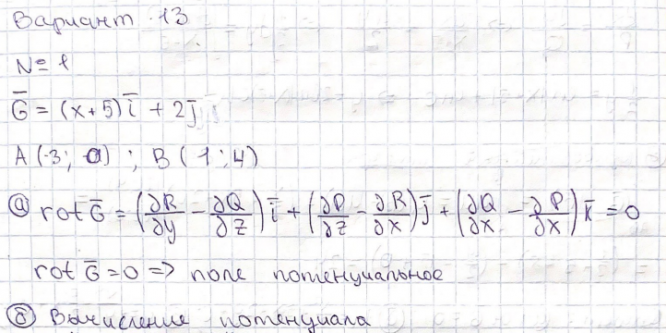 Вариант 13
№ 1
G̅ = (x+5)i̅ + 2j̅
A (-3; 0) ; B ( 1 ; 4)
а) rot G̅ = (∂R/∂y - ∂Q/∂z) i̅ + (∂P/∂z - ∂R/∂x) j̅ + (∂Q/∂x - ∂P/∂x) k̅ = 0
rot G̅ = 0 => поле потенциальное
б) Вычисление потенциала